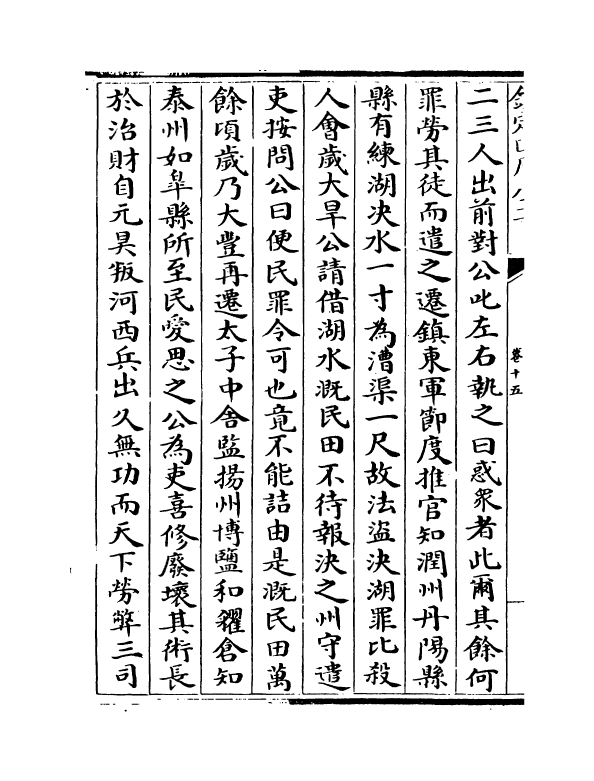 卷十五
二三人出前對公叱左右執之曰惑衆者此爾其餘何
罪勞其徒而遣之遷鎮東軍節度推官知潤州丹陽縣
縣有練湖決水一寸為漕渠一尺故法盜決湖罪比殺
人會歲大旱公請借湖水溉民田不待報決之州守遣
吏按問公曰便民罪令可也竟不能詰由是溉民田萬
餘頃歲乃大豐再遷太子中舍監揚州博鹽和糴倉知
泰州如臯縣所至民愛思之公為吏喜修廢壞其術長
於治財自元昊叛河西兵出久無功而天下勞弊三司